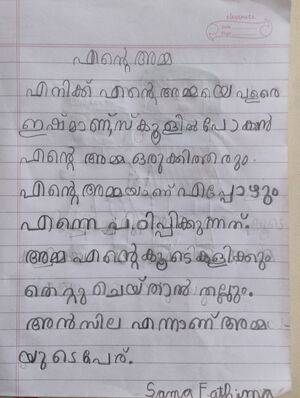 classmate
Date
Page
എന്റെ അമ്മ
എനിക്ക് എന്റെ അമ്മയെ വളരെ
ഇഷ്മാണ്സ്കൂളിൽ പോകാൻ
എന്റെ അമ്മ ഒരുക്കിത്തരും.
എന്റെ അമ്മയാണ് എപ്പോഴും
എന്നെ പഠിപ്പിക്കുന്നത്.
അമ്മ എന്റെ കൂടെ കളിക്കും
തെറ്റു ചെയ്താൽ തല്ലും.
അൻസില എന്നാണ് അമ്മ
യുടെ പേര്.
Sama Fathima